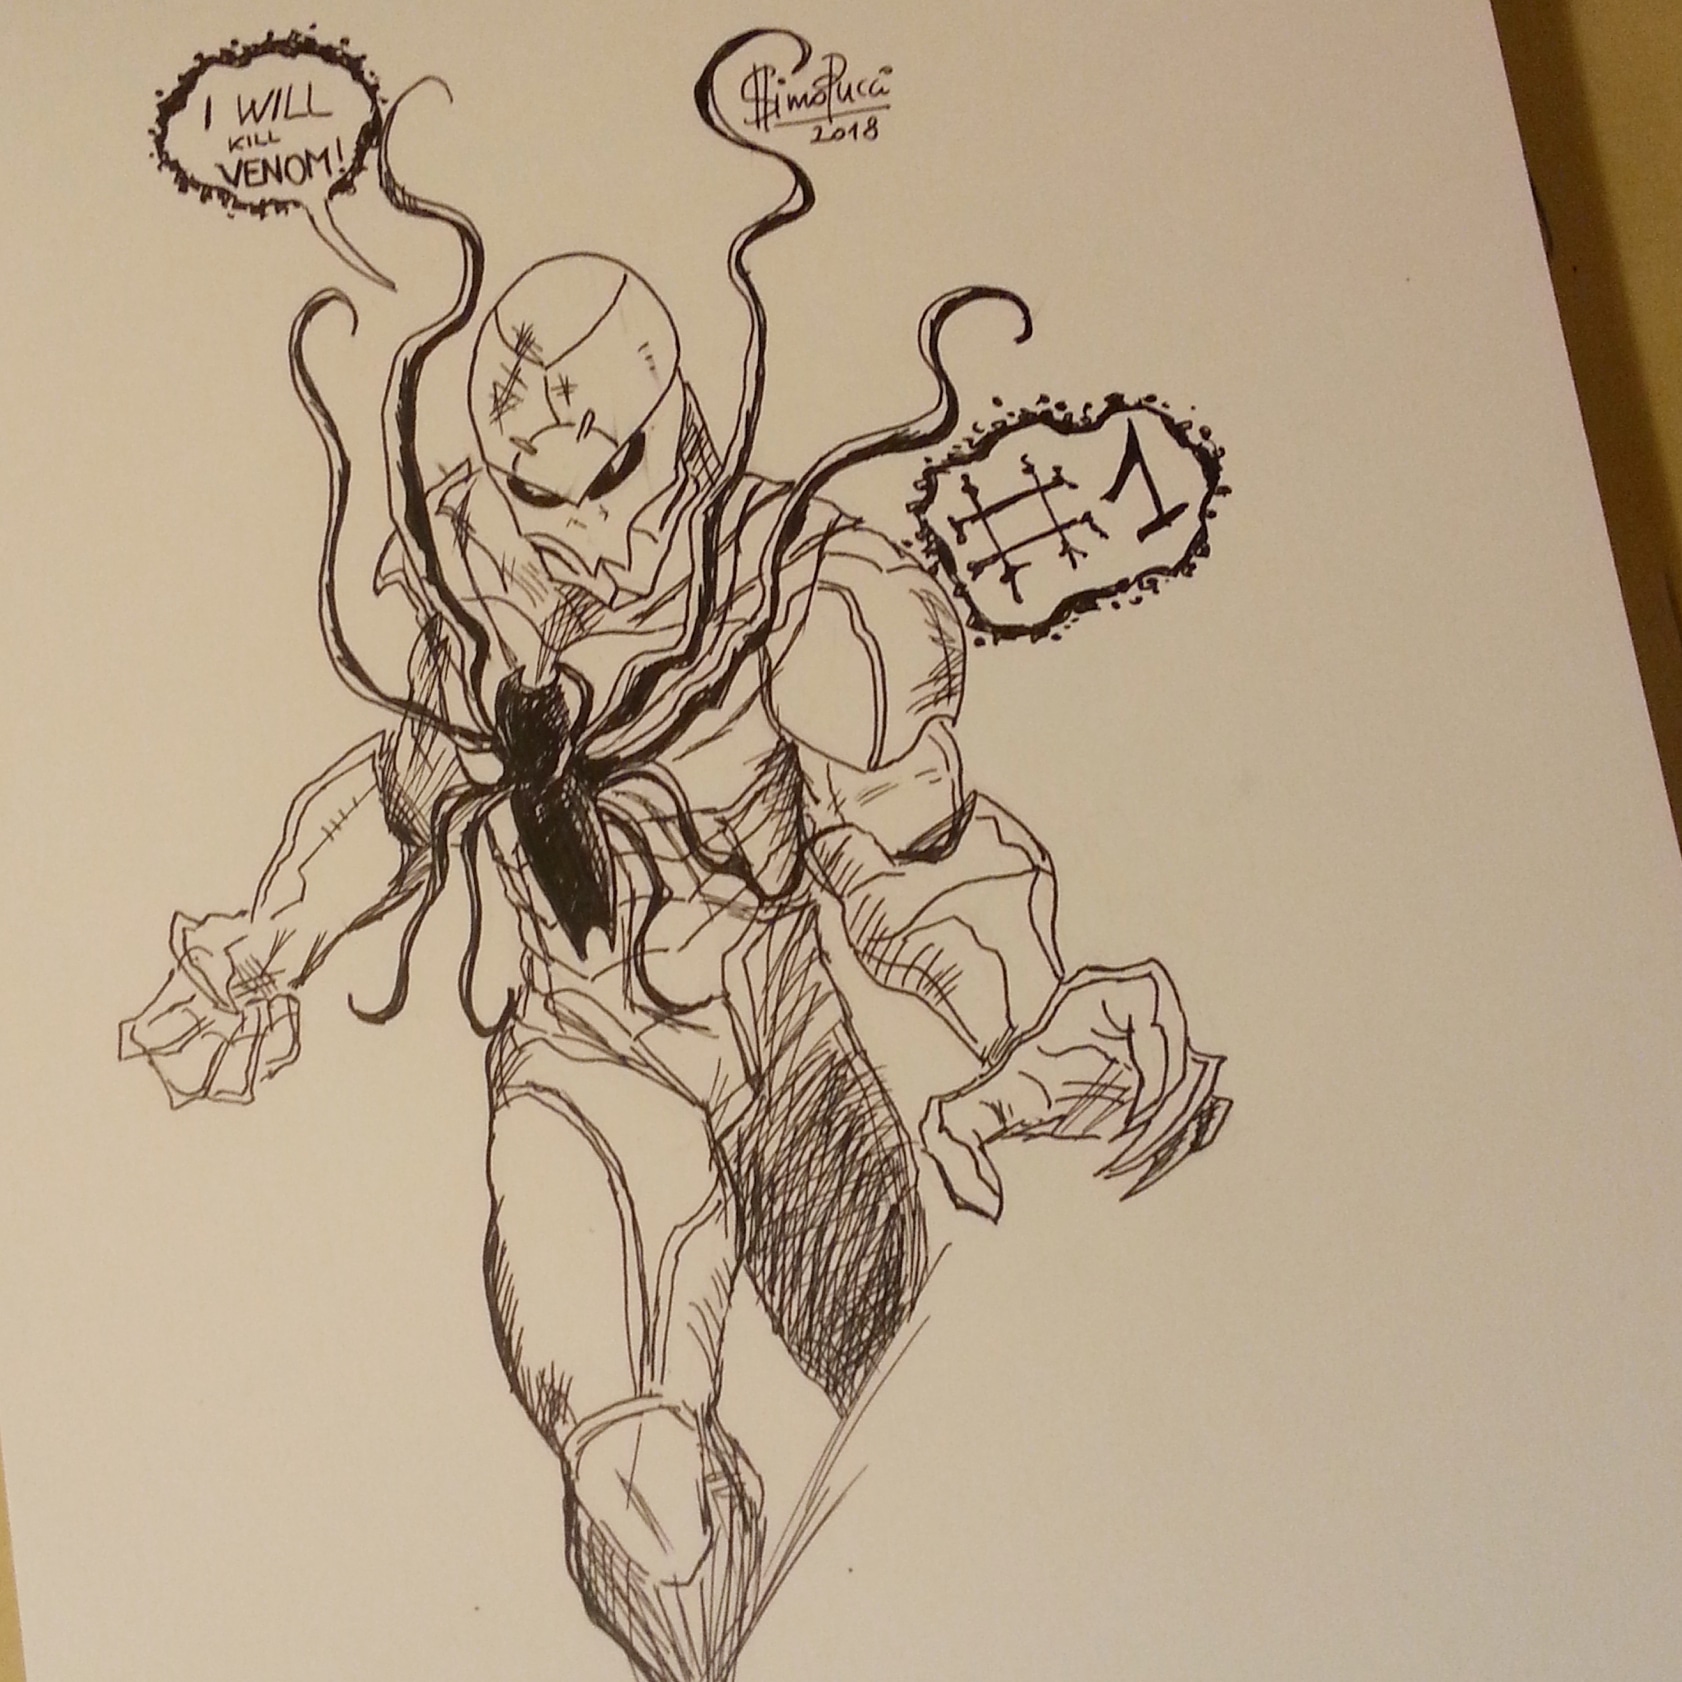 I WILL
KILL
VENOM!
SimoPucci
2018
#1